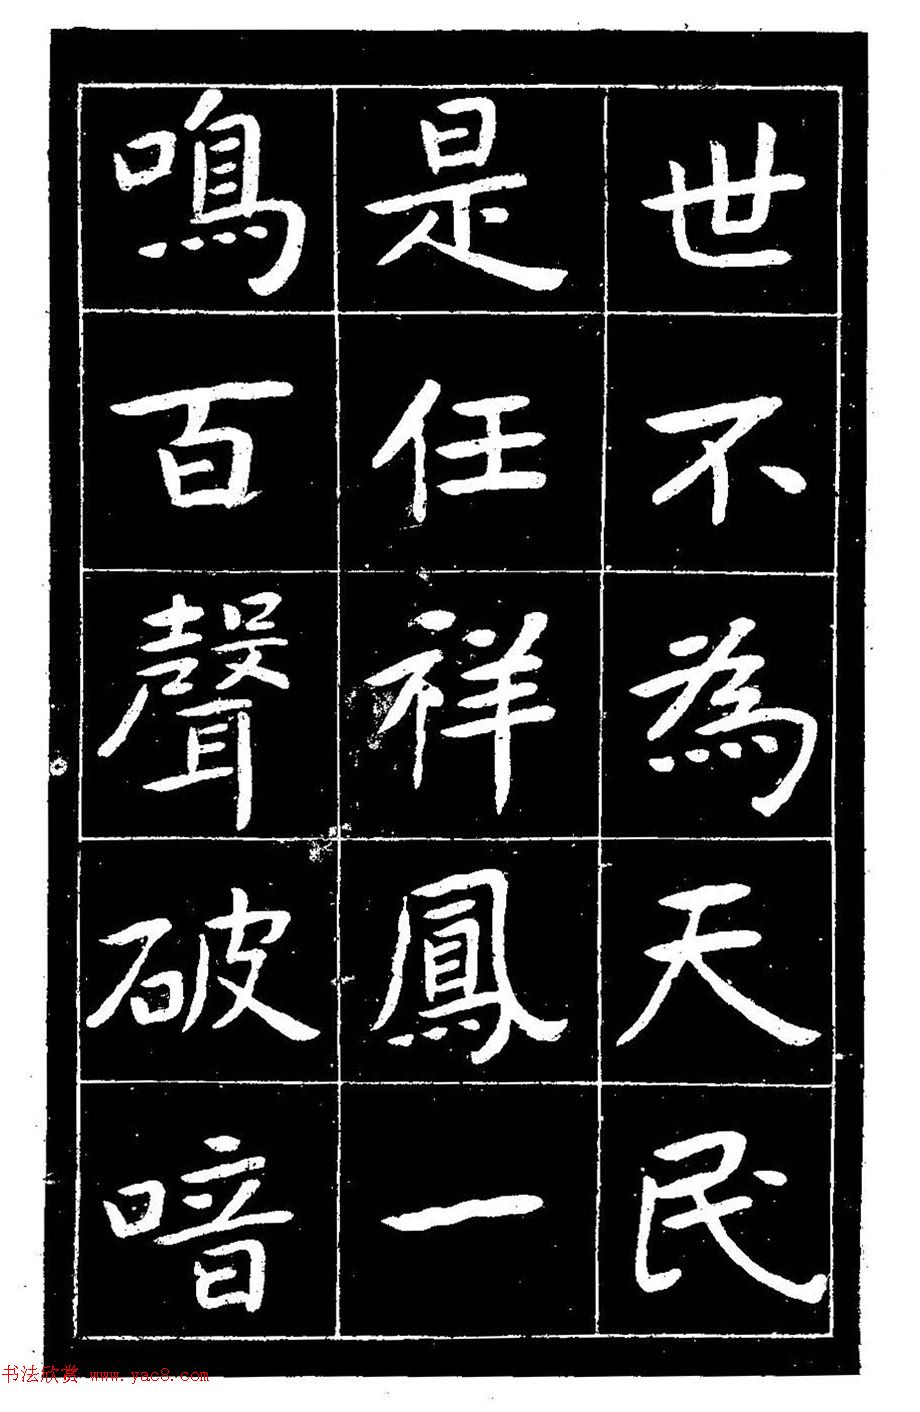 世不為天民
是任祥鳳一
鳴百聲破喑
书法欣赏 www.yac8.com